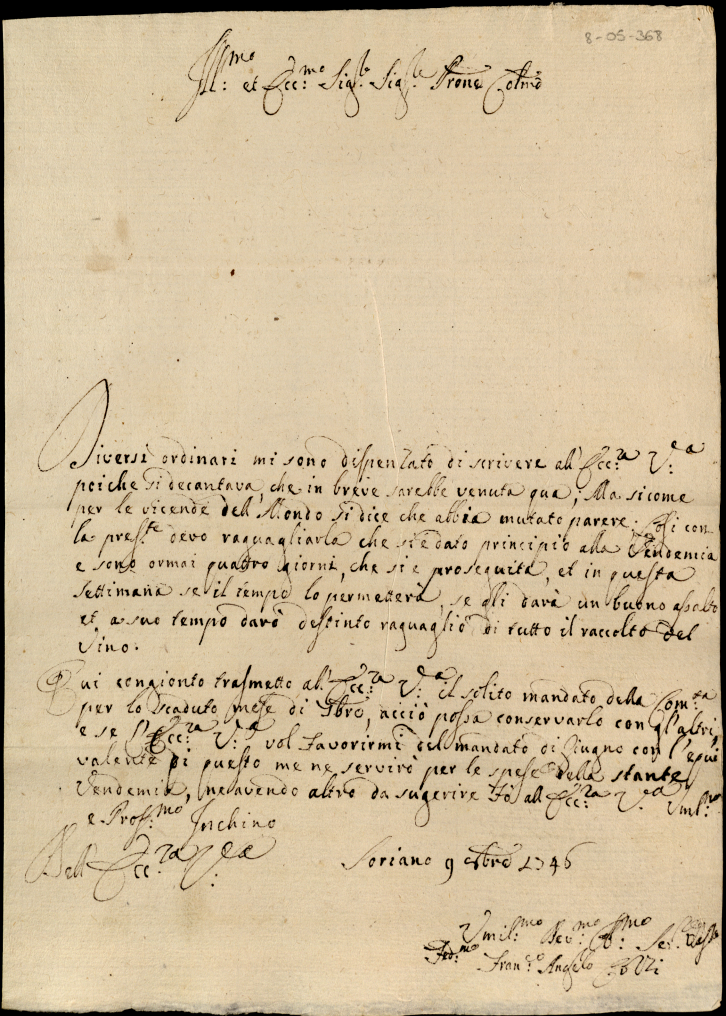 8-05-368
Ill:mo et Ecc:mo Sig.re Sig.re Prone Colmo
Diversi ordinari mi sono dispenzato di scrivere all'Ecc:za V:a
poiche si decantava, che in breve sarebbe venuta qua, Ma sicome
per le vicende del Mondo si dice che abbia mutato parere; Così con
la pres:te devo raguagliarla che si è dato principio alla Vendemia
e sono ormai quattro giorni, che si è proseguita, et in questa
settimana se il tempo lo permetterà, se gli darà un buono assalto
et a suo tempo darò destinto raguaglio di tutto il raccolto del
Vino.
Qui congionto trasmetto all'Ecc:za V:a il solito mandato della Com:tà
per lo scaduto mese di 7bre, acciò possa conservarlo con gl'altri,
e se l'Ecc:za V:a vol favorirmi del mandato di Giugno con l'equi
valente di questo me ne servirò per le spese della stante
Vendemia, ne avendo altro da sugerire fò all'Ecc:za V:a Umil:mo
e Prof:mo Inchino
Dell'Ecc:za V:a
Soriano 9 8bre 1746
Umil:mo Dev:mo Obb:mo Se:
Fed:mo
Fran:co Angelo